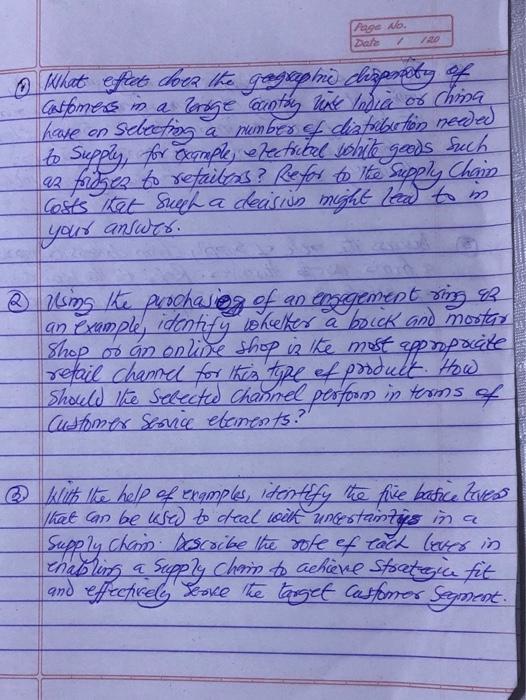 Page No.
Date / /20
① What effect does the geographic disparity of
Customers in a large country like India or China
have on selecting a number of distribution needed
to Supply, for example, electrical white goods such
as fridges to retailers? Refer to the Supply Chain
Costs that such a decision might lead to in
your answer.
② Using the purchasing of an engagement ring as
an example, identify whether a brick and mortar
Shop or an online shop is the most appropriate
retail channel for this type of product. How
Should the Selected channel perform in terms of
Customer Service elements?
③ With the help of examples, identify the five basic levers
that can be used to deal with uncertainties in a
Supply Chain. Describe the role of each lever in
enabling a Supply Chain to achieve Strategic fit
and effectively Serve the target Customer Segment.